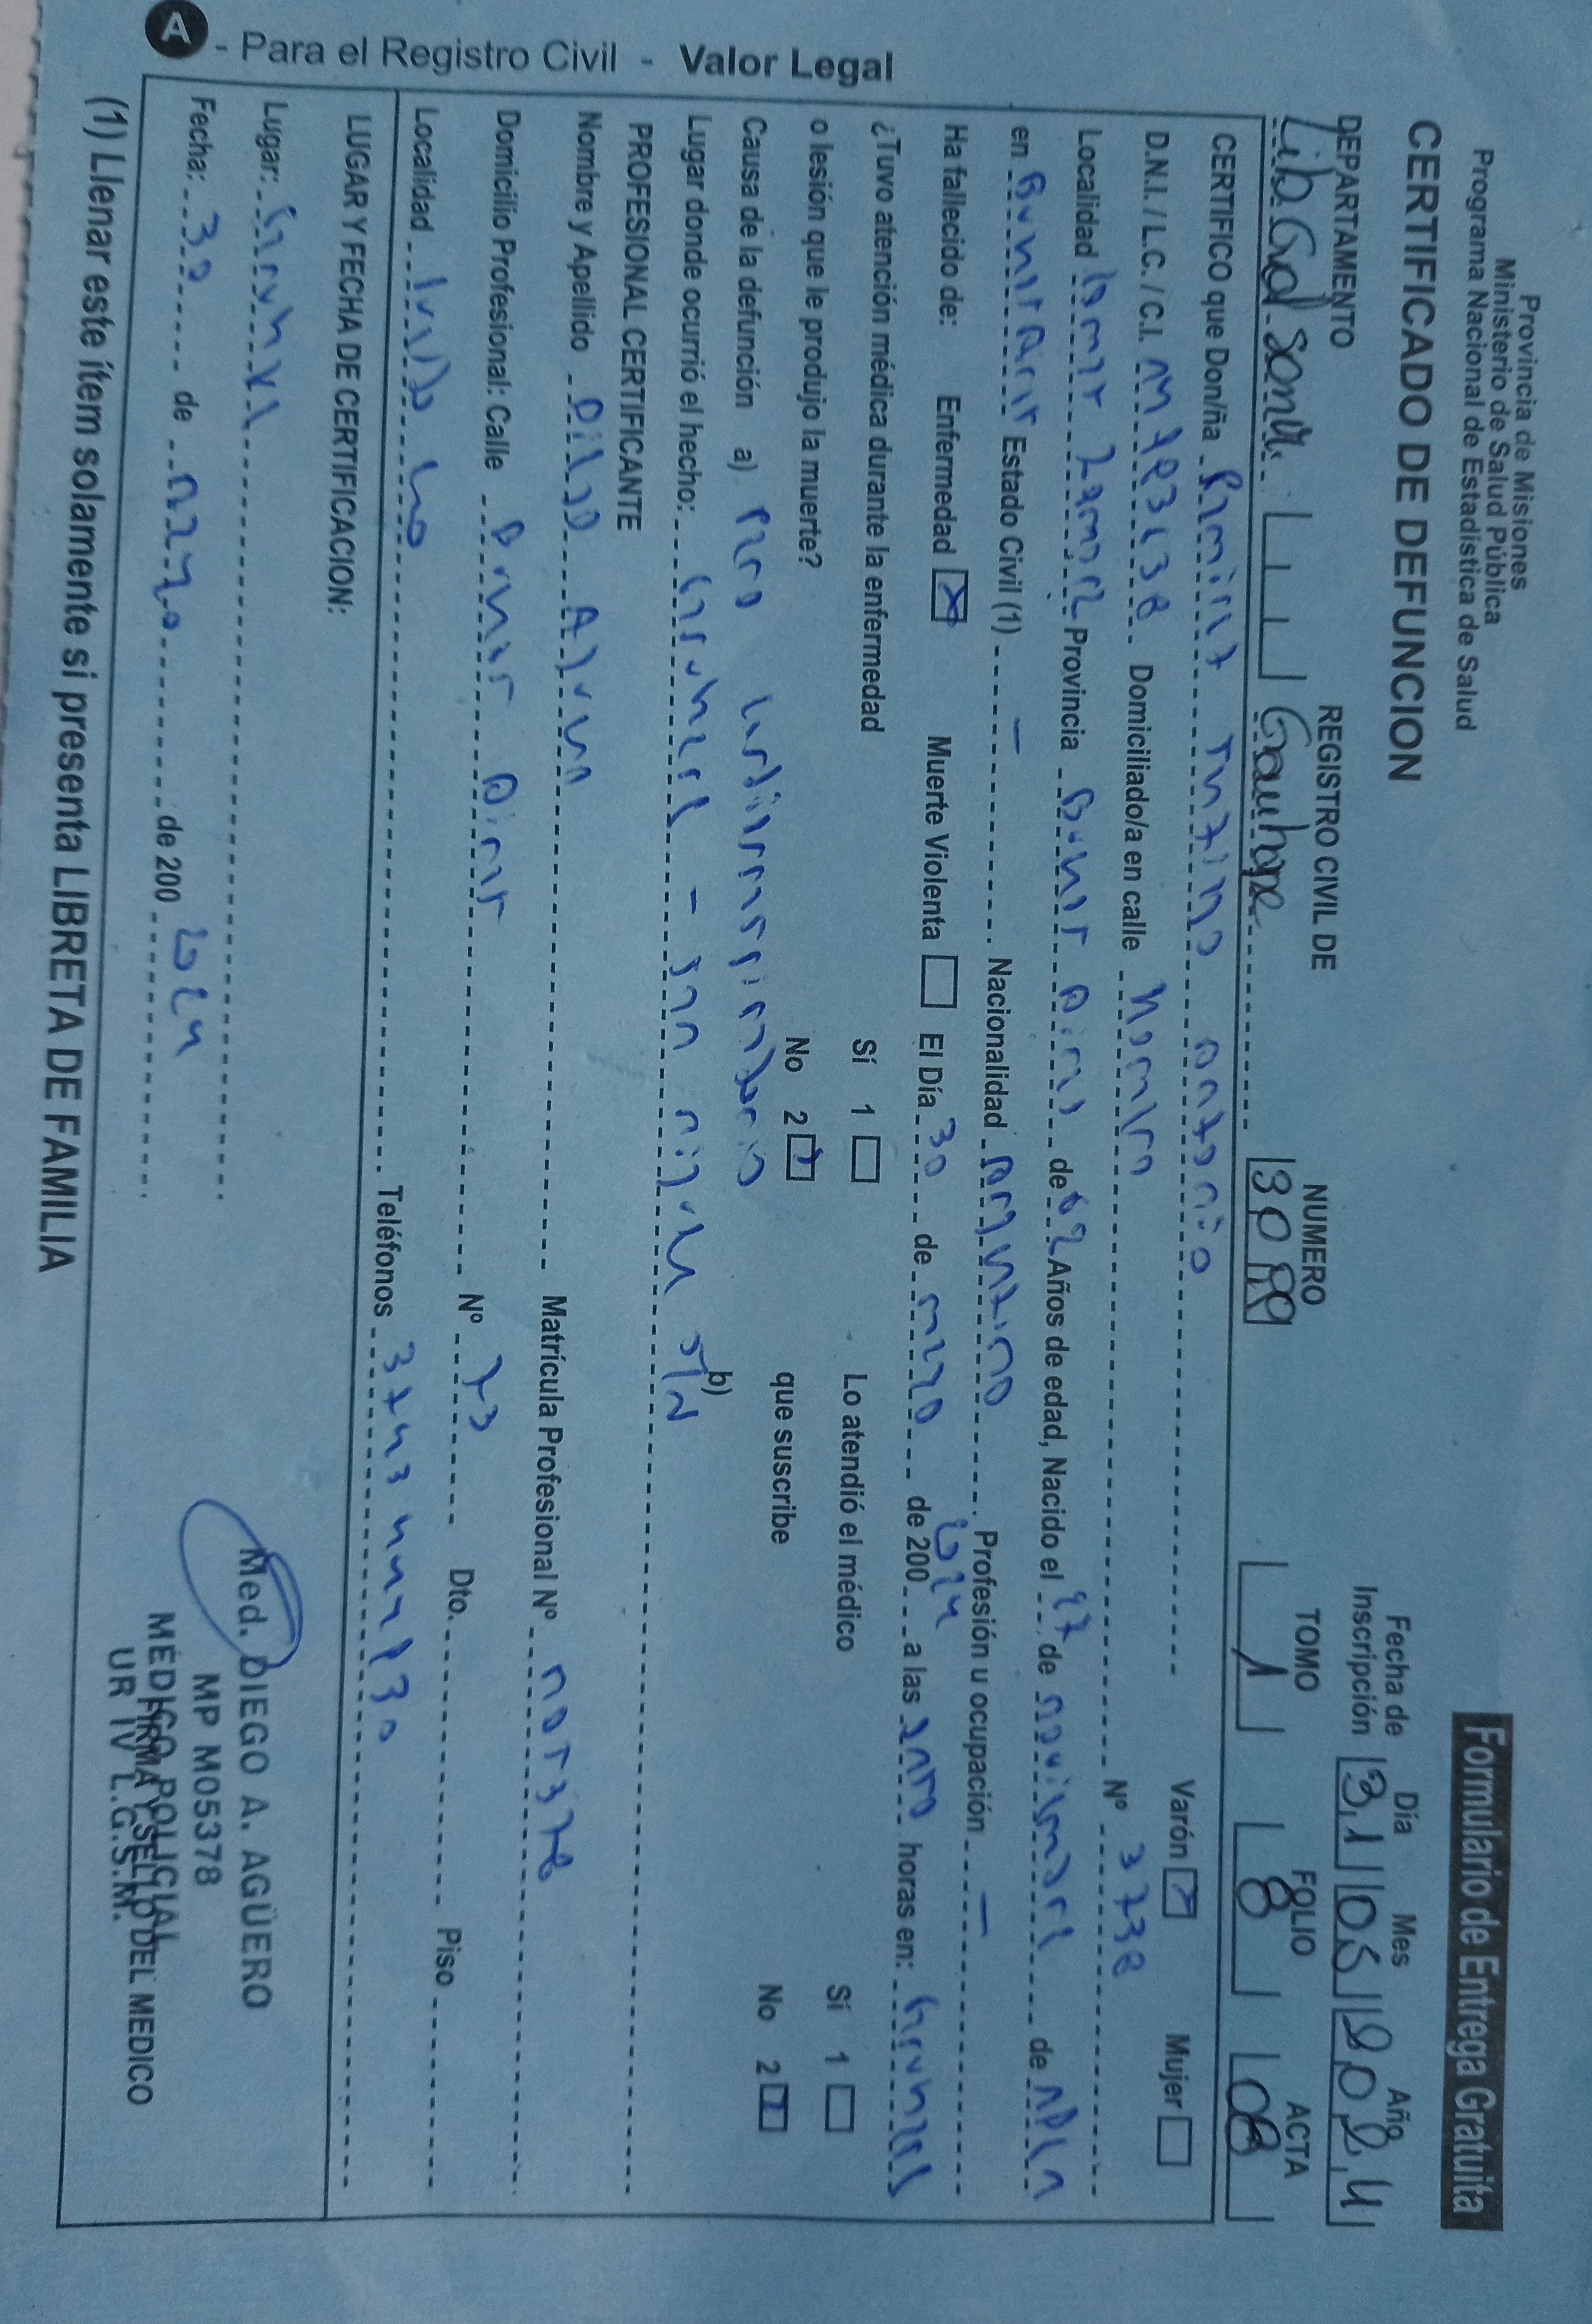 Provincia de Misiones
Ministerio de Salud Pública
Programa Nacional de Estadística de Salud
Formulario de Entrega Gratuita
CERTIFICADO DE DEFUNCION
Fecha de Inscripción Día Mes Año
31 05 2024
DEPARTAMENTO REGISTRO CIVIL DE NUMERO TOMO FOLIO ACTA
Lib Gral San M. Garuhape 1 8 08
CERTIFICO que Don/ña Antonio Varón X Mujer
D.N.I. / L.C. / C.I. Domiciliado/a en calle Nº 3738
Localidad Provincia Buenos Aires de Años de edad, Nacido el de noviembre de
en Buenos Aires Estado Civil (1) - Nacionalidad Argentino Profesión u ocupación -
Ha fallecido de: Enfermedad X Muerte Violenta El Día 30 de mayo de 200 2024 a las horas en: Garuhape
¿Tuvo atención médica durante la enfermedad Sí 1 Lo atendió el médico Sí 1
o lesión que le produjo la muerte? No 2 que suscribe No 2
Causa de la defunción a) Paro cardiorrespiratorio b)
Lugar donde ocurrió el hecho: Garuhape - San Miguel S/N
PROFESIONAL CERTIFICANTE
Nombre y Apellido Diego Aguero Matrícula Profesional Nº M05378
Domicilio Profesional: Calle Buenos Aires Nº 73 Dto. Piso
Localidad Teléfonos
LUGAR Y FECHA DE CERTIFICACION:
Lugar: Garuhape
Fecha: 30 de mayo de 200 2024
Med. DIEGO A. AGÜERO
MP M05378
MÉDICO POLICIAL
UR IV L.G.S.M.
FIRMA Y SELLO DEL MEDICO
(1) Llenar este ítem solamente si presenta LIBRETA DE FAMILIA
A - Para el Registro Civil - Valor Legal